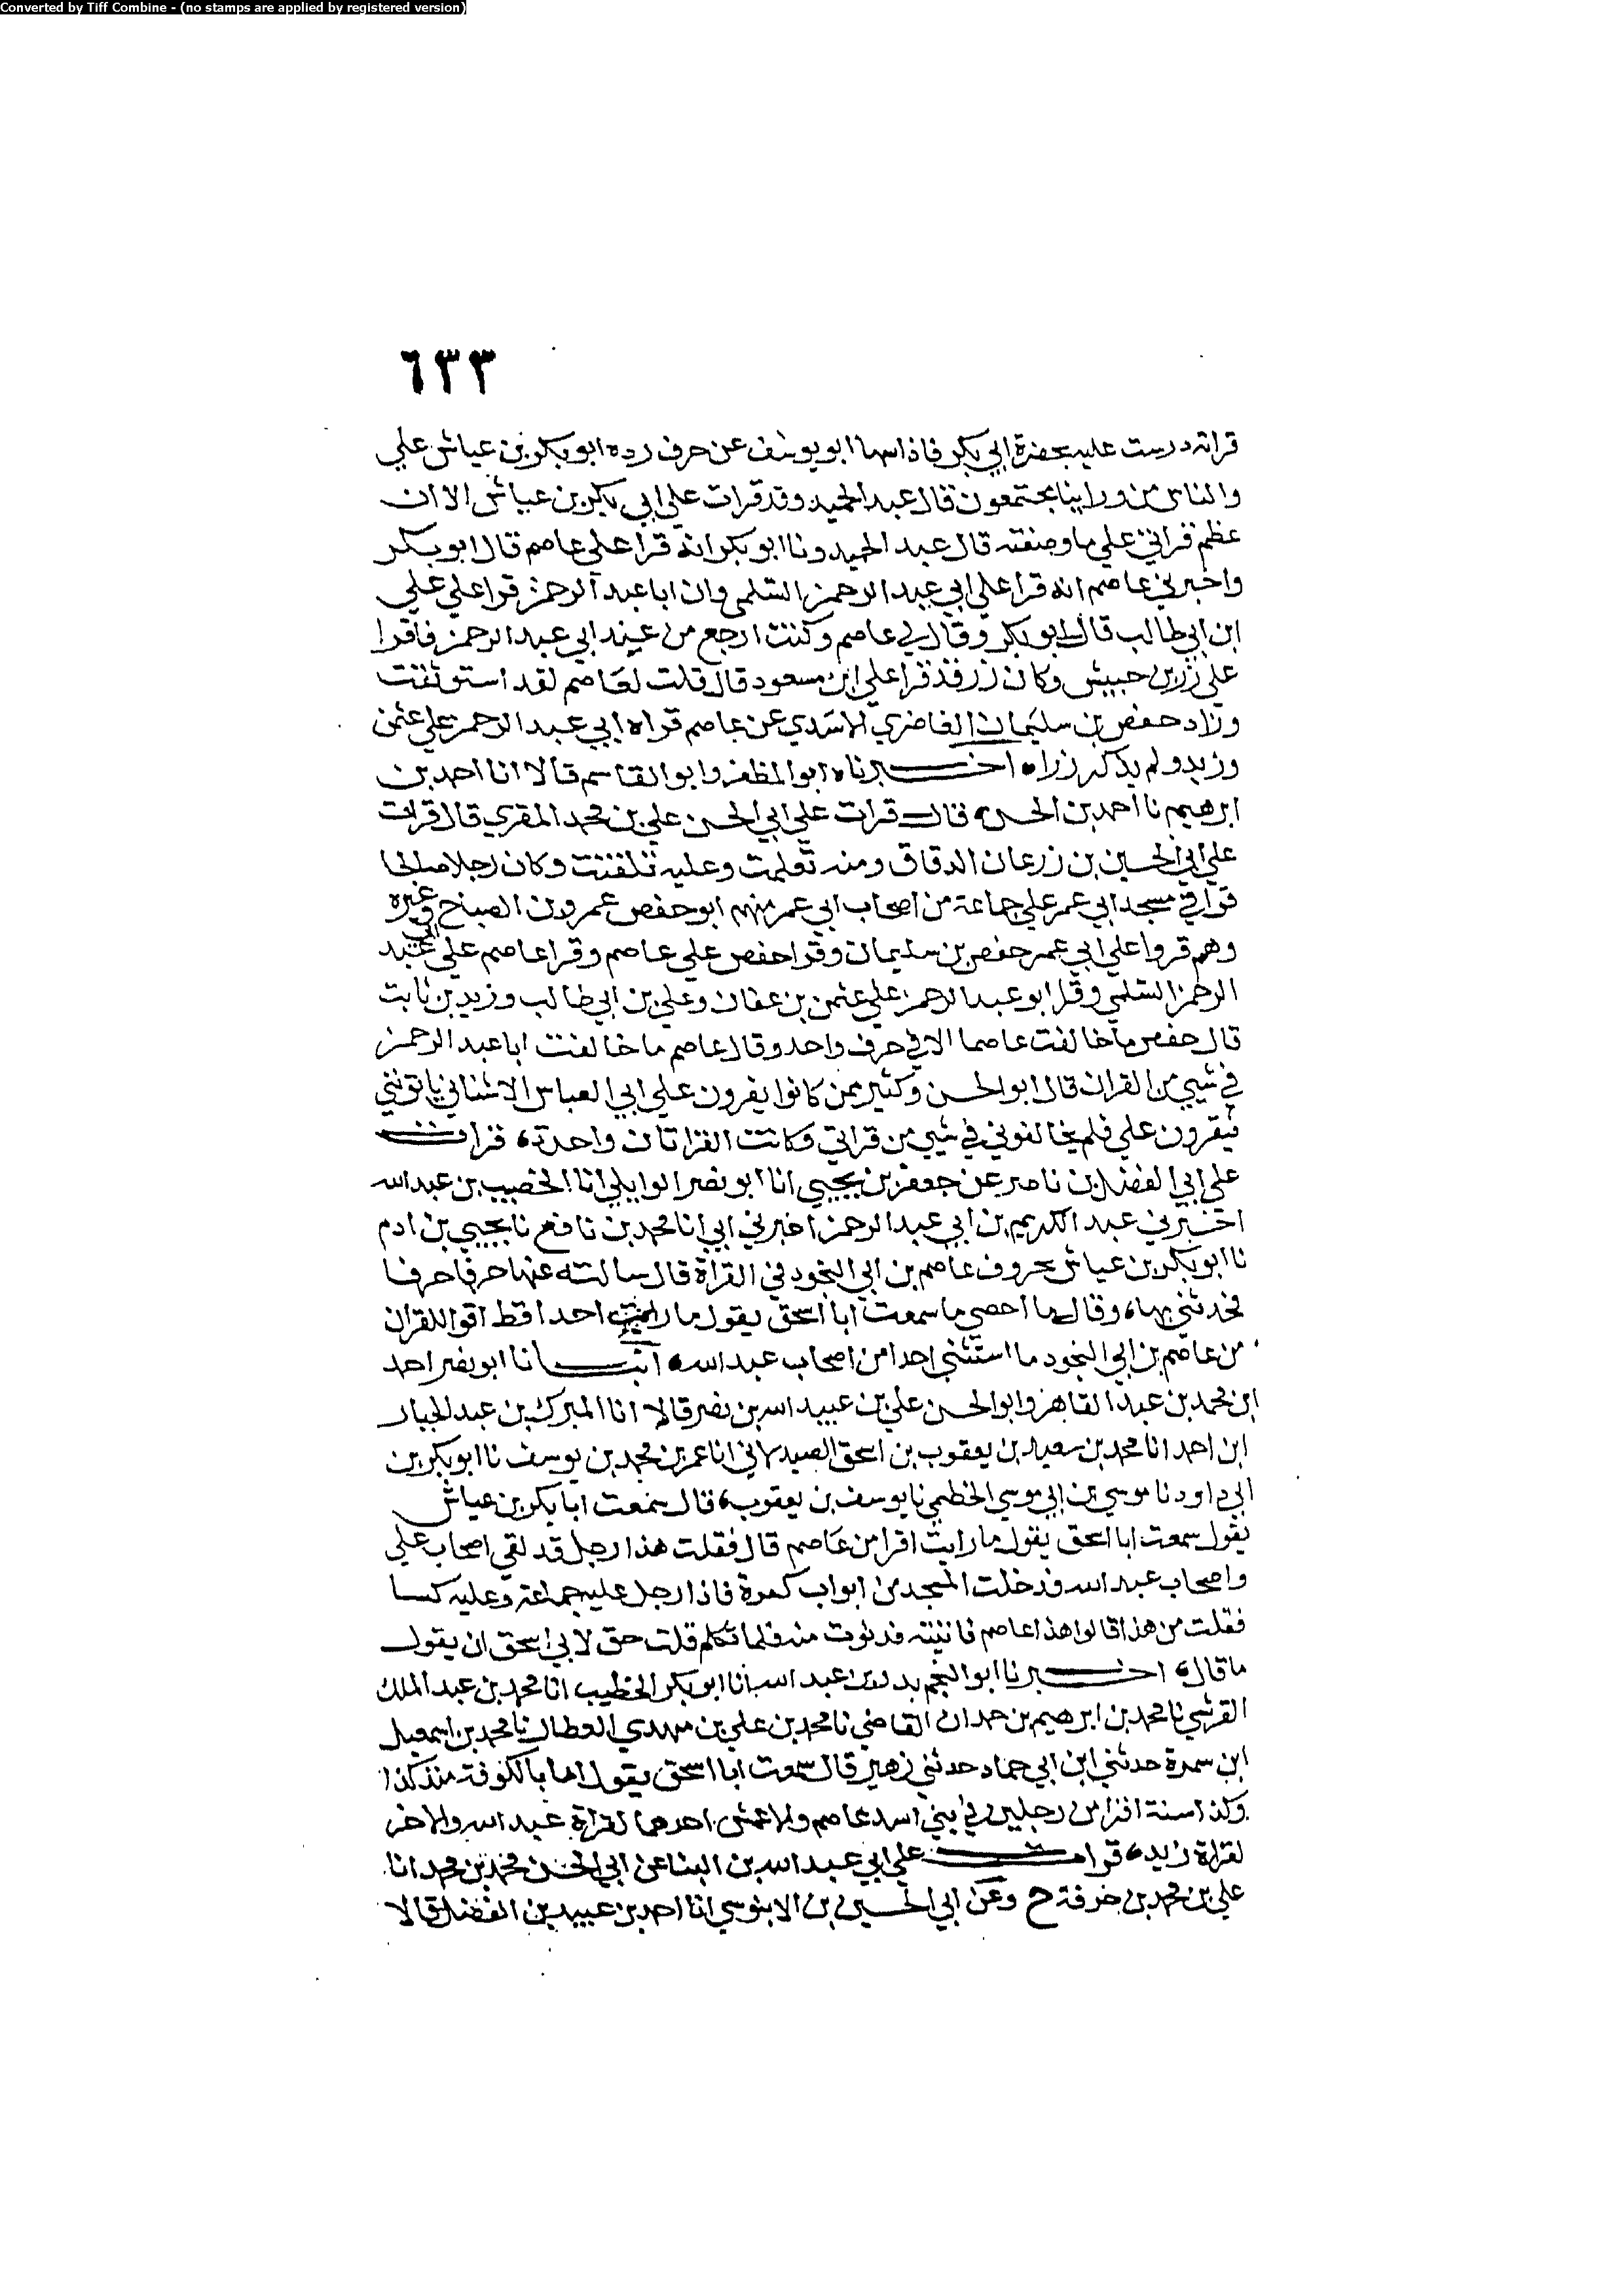 Converted by Tiff Combine - (no stamps are applied by registered version)
٦٣٣
قراته درست عليه بحضرة ابي بكر فاذا سها ابو يوسف عن حرف رده ابو بكر بن عياش علي
والناس من وراينا مجتمعون قال عبد الحميد وقد قرات علي ابي بكر بن عياش الا ان
عظم قراتي علي ما وصفته قال عبد الحميد ونا ابو بكر انه قرا علي عاصم قال ابو بكر
واخبرني عاصم انه قرا علي ابي عبد الرحمن السلمي وان ابا عبد الرحمن قرا علي علي
ابن ابي طالب قال ابو بكر وقال لي عاصم وكنت ارجع من عند ابي عبد الرحمن فاقرا
علي زر بن حبيش وكان زر قد قرا علي ابن مسعود قال قلت لعاصم لقد استوثقت
وزاد حفص بن سليمان الغاضري الاسدي عن عاصم قراه ابي عبد الرحمن علي عثمن
وزيد ولم يذكر زرا ه اخبرناه ابو المظفر وابو القاسم قالا انا احمد بن
ابرهيم نا احمد بن الحسن قال قرات علي ابي الحسن علي بن محمد المقري قال قرات
علي ابي الحسين بن زرعان الدقاق ومنه تعلمت وعليه تلقنت وكان رجلا صالحا
قرا في مسجد ابي عمر علي جماعة من اصحاب ابي عمر منهم ابو حفص عمرو بن الصباح وغيره
وهم قروا علي ابي عمر حفص بن سليمان وقرا حفص علي عاصم وقرا عاصم علي ابي عبد
الرحمن السلمي وقرا ابو عبد الرحمن علي عثمن بن عفان وعلي بن ابي طالب وزيد بن ثابت
قال حفص ما خالفت عاصما الا في حرف واحد وقال عاصم ما خالفت ابا عبد الرحمن
في شيي من القران قال ابو الحسن وكثير ممن كانوا يقرون علي ابي العباس الاشناني ياتونني
فيقرون علي فلم يخالفوني في شيي من قراتي وكانت القراتان واحدة قرات
علي ابي الفضل بن ناصر عن جعفر بن يحيي انا ابو نصر الوايلي انا الخصيب بن عبد الله
اخبرني عبد الكريم بن ابي عبد الرحمن اخبرني ابي انا محمد بن نافع نا يحيي بن ادم
نا ابو بكر بن عياش بحروف عاصم بن ابي النجود في القراة قال سالته عنها حرفا حرفا
فحدثني بها وقال ما احصي ما سمعت ابا اسحق يقول ما رايت احدا قط اقرا للقران
من عاصم بن ابي النجود ما استثني احدا من اصحاب عبد الله انبانا ابو نصر احمد
ابن محمد بن عبد القاهر وابو الحسن علي بن عبيد الله بن نصر قالا انا المبرك بن عبد الجبار
ابن احمد انا محمد بن سعيد بن يعقوب بن اسحق الصيدلاني انا عمر بن محمد بن يوسف نا ابو بكر بن
ابي داود نا موسي بن ابي موسي الخطمي نا يوسف بن يعقوب قال سمعت ابا بكر بن عياش
يقول سمعت ابا اسحق يقول ما رايت اقرا من عاصم قال فقلت هذا رجل قد لقي اصحاب علي
واصحاب عبد الله فدخلت المسجد من ابواب كندة فاذا رجل عليه جماعة وعليه كسا
فقلت من هذا قالوا هذا عاصم فاتيته فدنوت منه فلما تكلم قلت حق لابي اسحق ان يقول
ما قال اخبرنا ابو النجم بدر بن عبد الله انا ابو بكر الخطيب انا محمد بن عبد الملك
القرشي نا محمد بن ابرهيم بن حمدان القاضي نا محمد بن علي بن مهدي العطار نا محمد بن اسمعيل
ابن سمرة حدثني ابن ابي حماد حدثني زهير قال سمعت ابا اسحق يقول اما بالكوفة منذ كذا
وكذا سنة اقرا من رجلين في بني اسد عاصم والاعمش احدهما لقراة عبد الله والاخر
لقراة زيد قرات علي ابي عبد الله بن البنا عن ابي الحسن محمد بن محمد انا
علي بن محمد بن خزفة ح وعن ابي الحسين بن الابنوسي انا احمد بن عبيد بن الفضل قالا